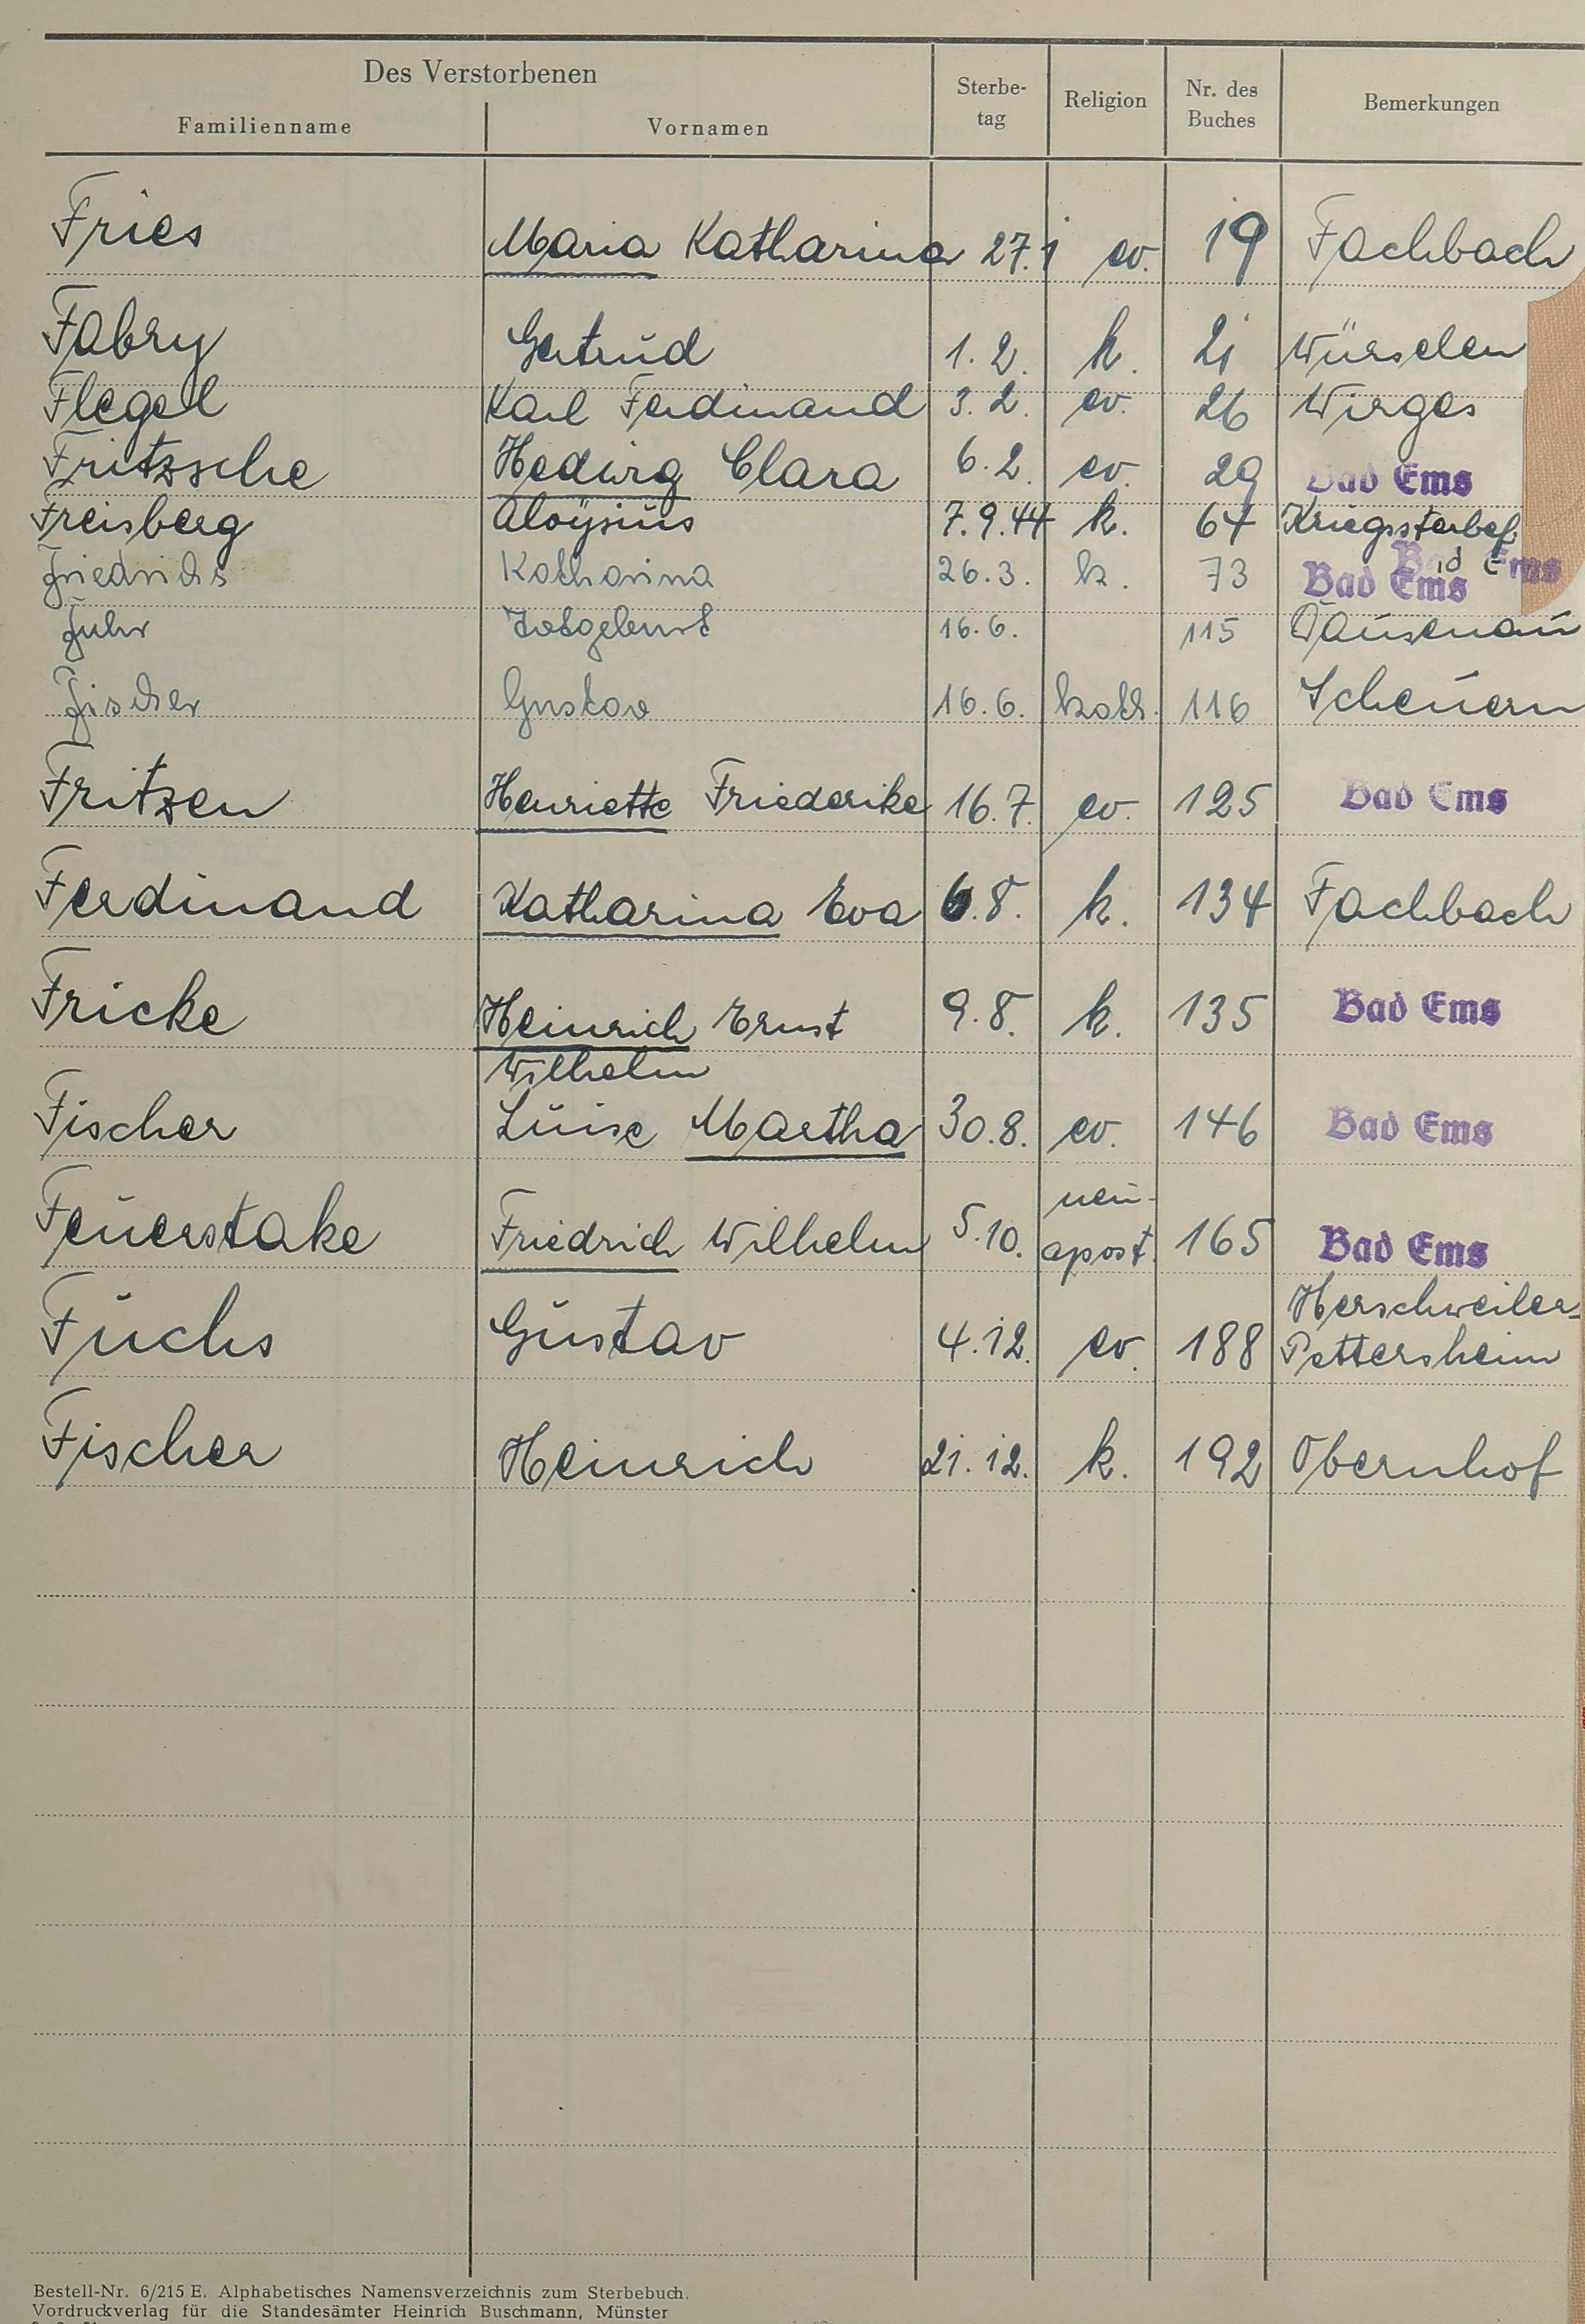 Des Verstorbenen
Familienname Vornamen Sterbe-tag Religion Nr. des Buches Bemerkungen
Fries Maria Katharina 27.1 ev. 19 Fachbach
Fabry Gertrud 1.2. k. 21 Würselen
Flegel Karl Ferdinand 3.2. ev. 26 Wirges
Fritzsche Hedwig Clara 6.2. ev. 29 Bad Ems
Freisberg Aloysius 7.9.44 k. 64 Kriegssterbef.
Bad Ems
Friedrichs Katharina 26.3. k. 73 Bad Ems
Fuhr Totgeburt 16.6. 115 Dausenau
Fischer Gustav 16.6. kath. 116 Scheuern
Fritzen Henriette Friederike 16.7. ev. 125 Bad Ems
Ferdinand Katharina Eva 6.8. k. 134 Fachbach
Fricke Heinrich Ernst 9.8. k. 135 Bad Ems
Wilhelm
Fischer Luise Martha 30.8. ev. 146 Bad Ems
Feuerstake Friedrich Wilhelm 5.10. neu-apost. 165 Bad Ems
Fuchs Gustav 4.12. ev. 188 Herschweiler-Pettersheim
Fischer Heinrich 21.12. k. 192 Obernhof
Bestell-Nr. 6/215 E. Alphabetisches Namensverzeichnis zum Sterbebuch.
Vordruckverlag für die Standesämter Heinrich Buschmann, Münster